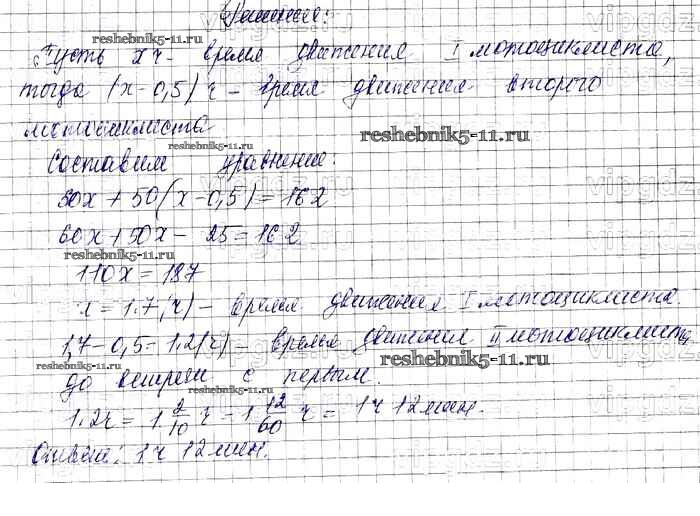 Решение:
Пусть x ч - время движения I мотоциклиста,
тогда (x-0,5) ч - время движения второго
мотоциклиста
Составим уравнение:
60x + 50(x-0,5) = 162
60x + 50x - 25 = 162
110x = 187
x = 1.7(ч) - время движения I мотоциклиста.
1,7 - 0,5 = 1.2(ч) - время движения II мотоциклиста
до встречи с первым.
1.2ч = 1 2/10 ч = 1 12/60 ч = 1ч 12мин.
Ответ: 1ч 12мин.
reshebnik5-11.ru
reshebnik5-11.ru
reshebnik5-11.ru
reshebnik5-11.ru
reshebnik5-11.ru
reshebnik5-11.ru
reshebnik5-11.ru
vipgdz
vipgdz
vipgdz
vipgdz